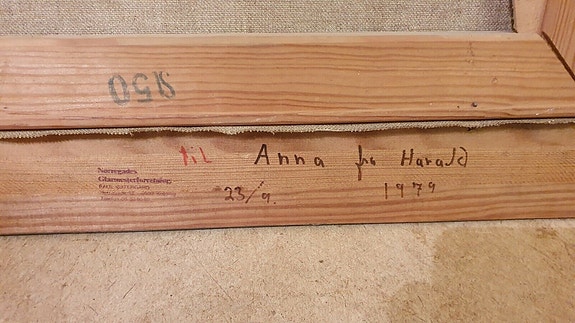 950
til Anna fra Harald
23/9. 1979
Nørregades
Glarmesterforretning